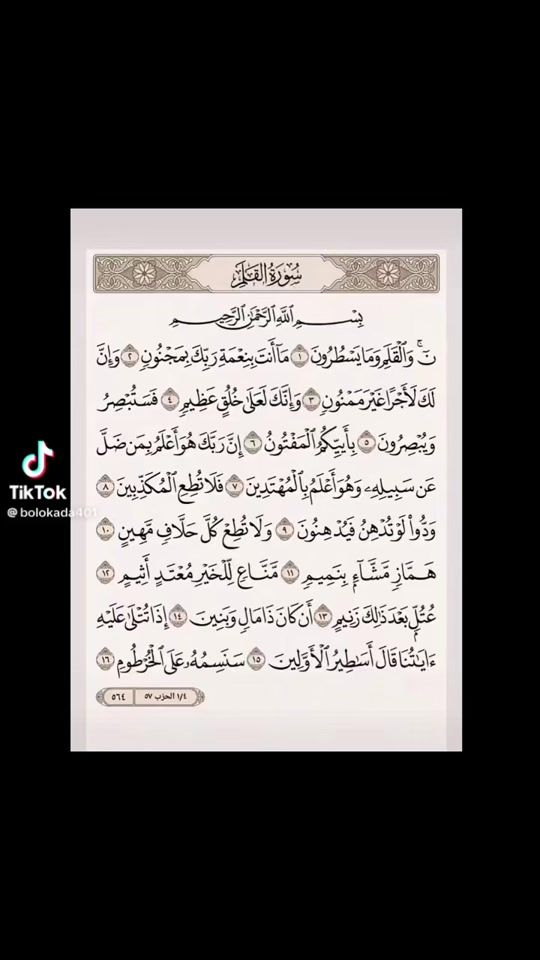 سُورَةُ القَلَمِ
بِسْمِ اللَّهِ الرَّحْمَٰنِ الرَّحِيمِ
نٓ ۚ وَالْقَلَمِ وَمَا يَسْطُرُونَ ۝١ مَا أَنتَ بِنِعْمَةِ رَبِّكَ بِمَجْنُونٍ ۝٢ وَإِنَّ
لَكَ لَأَجْرًا غَيْرَ مَمْنُونٍ ۝٣ وَإِنَّكَ لَعَلَىٰ خُلُقٍ عَظِيمٍ ۝٤ فَسَتُبْصِرُ
وَيُبْصِرُونَ ۝٥ بِأَييِّكُمُ الْمَفْتُونُ ۝٦ إِنَّ رَبَّكَ هُوَ أَعْلَمُ بِمَن ضَلَّ
عَن سَبِيلِهِۦ وَهُوَ أَعْلَمُ بِالْمُهْتَدِينَ ۝٧ فَلَا تُطِعِ الْمُكَذِّبِينَ ۝٨
وَدُّوا لَوْ تُدْهِنُ فَيُدْهِنُونَ ۝٩ وَلَا تُطِعْ كُلَّ حَلَّافٍ مَّهِينٍ ۝١٠
هَمَّازٍ مَّشَّاءٍ بِنَمِيمٍ ۝١١ مَّنَّاعٍ لِّلْخَيْرِ مُعْتَدٍ أَثِيمٍ ۝١٢
عُتُلٍّ بَعْدَ ذَٰلِكَ زَنِيمٍ ۝١٣ أَن كَانَ ذَا مَالٍ وَبَنِينَ ۝١٤ إِذَا تُتْلَىٰ عَلَيْهِ
ءَايَٰتُنَا قَالَ أَسَٰطِيرُ الْأَوَّلِينَ ۝١٥ سَنَسِمُهُۥ عَلَى الْخُرْطُومِ ۝١٦
١/٤ الحزب ٥٧ ٥٦٤
TikTok
@bolokada401